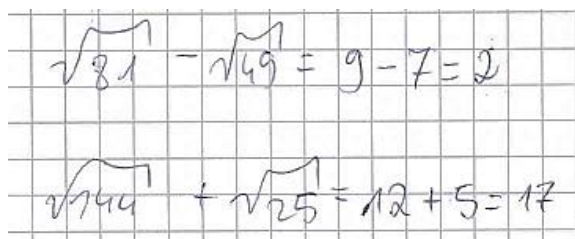 √81 - √49 = 9 - 7 = 2
√144 + √25 = 12 + 5 = 17